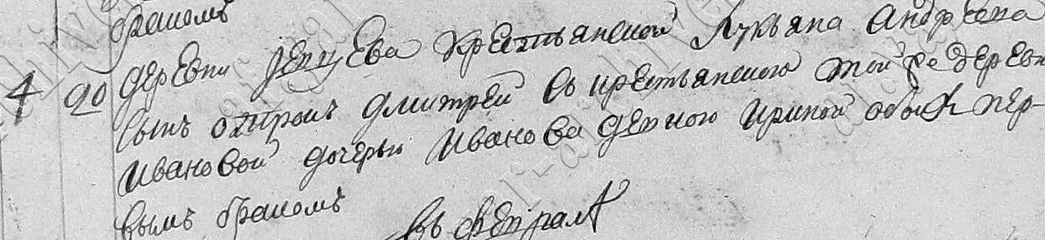 браком
4 20 деревни Депцева крестьянской Лукьяна Андреева
сынъ отрокъ Дмитрей съ крестьянскою той же деревни
Ивановой дочерью Иванова девкою Ириной обои пер-
вымъ бракомъ
Въ феврале